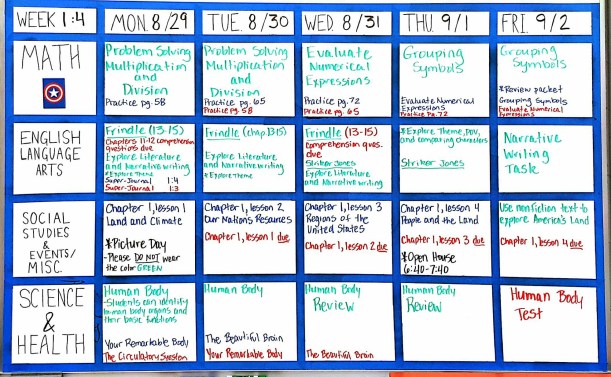 WEEK 1:4
MON. 8/29
TUE. 8/30
WED. 8/31
THU. 9/1
FRI. 9/2
MATH
Problem Solving
Multiplication
and
Division
Practice pg. 58
Problem Solving
Multiplication
and
Division
Practice pg. 65
Practice pg. 58
Evaluate
Numerical
Expressions
Practice pg. 72
Practice pg. 65
Grouping
Symbols
Evaluate Numerical
Expressions
Practice Pg. 72
Grouping
Symbols
*Review packet
Grouping Symbols
Evaluate Numerical
Expressions
ENGLISH
LANGUAGE
ARTS
Frindle (13-15)
Chapters 11-12 comprehension
questions due
Explore Literature
and Narrative writing
*Explore Theme
Super-Journal 1:4
Super-Journal 1:3
Frindle (chap 13-15)
Explore Literature
and Narrative writing
*Explore Theme
Frindle (13-15)
comprehension ques.
due
Striker Jones
Explore Literature
and Narrative writing
*Explore Theme, POV,
and comparing characters
Striker Jones
Narrative
Writing
Task
SOCIAL
STUDIES
&
EVENTS/
MISC.
Chapter 1, lesson 1
Land and Climate
*Picture Day
-Please DO NOT wear
the color GREEN
Chapter 1, lesson 2
Our Nation's Resources
Chapter 1, lesson 1 due
Chapter 1, lesson 3
Regions of the
United States
Chapter 1, lesson 2 due
Chapter 1, lesson 4
People and the Land
Chapter 1, lesson 3 due
*Open House
6:40-7:40
Use nonfiction text to
explore America's Land
Chapter 1, lesson 4 due
SCIENCE
&
HEALTH
Human Body
-Students can identify
human body organs and
their basic functions
Your Remarkable Body
The Circulatory System
Human Body
The Beautiful Brain
Your Remarkable Body
Human Body
Review
The Beautiful Brain
Human Body
Review
Human Body
Test